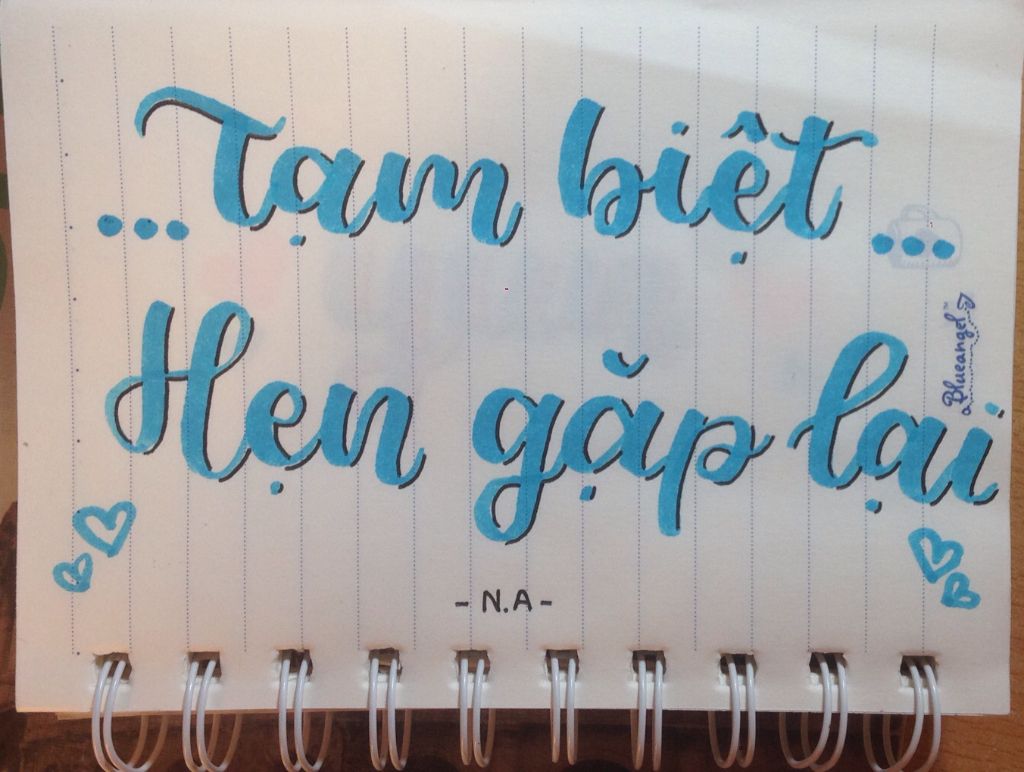 ...Tạm biệt...
Hẹn gặp lại
Blueangel
- N.A -